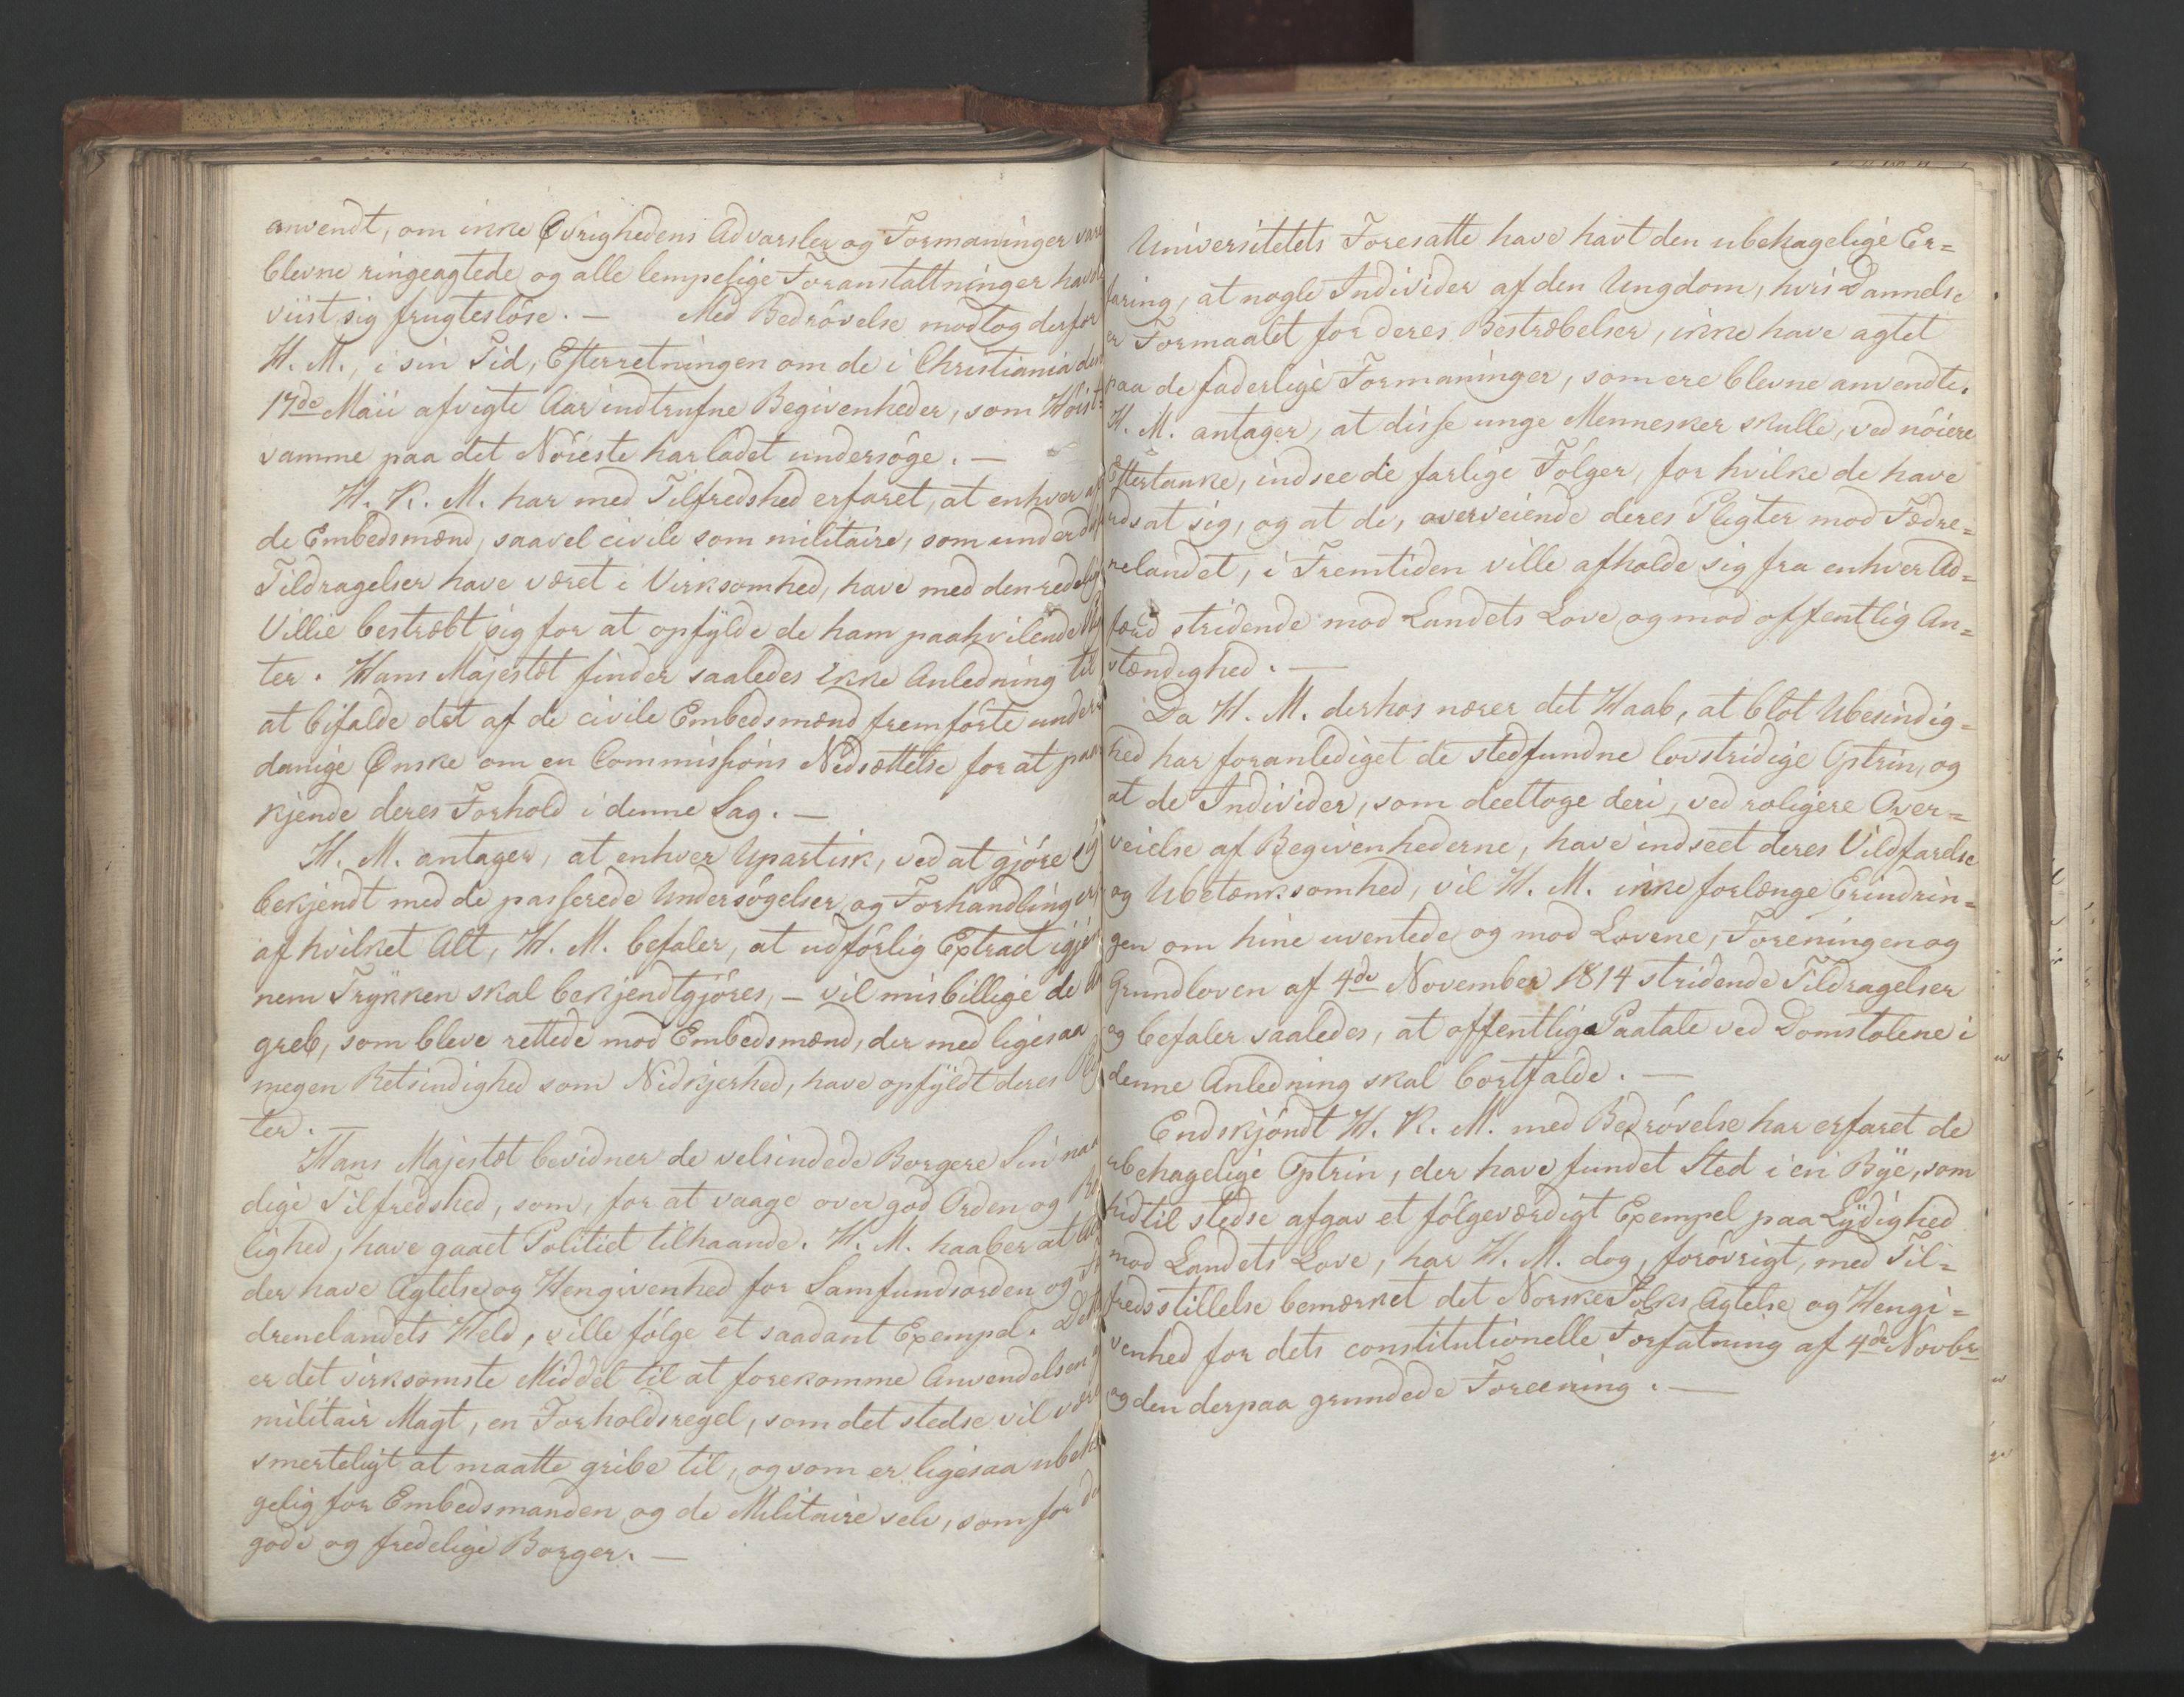 anvendt, om ikke Øvrighedens Advarsler og Formaninger vare
blevne ringeagtede og alle lempelige Foranstaltninger havde
viist sig frugtesløse. — Med Bedrøvelse modtog derfor
H. M., i sin Tid, Efterretningen om de i Christiania den
17de Maii afvigte Aar indtrufne Begivenheder, som Høist-
samme paa det Nøieste har ladet undersøge. —
H. K. M. har med Tilfredshed erfaret, at enhver af
de Embedsmænd, saavel civile som militaire, som under
Tildragelser have været i Virksomhed, have med den redelig
Villie bestræbt sig for at opfylde de ham paahvilende
ter. Hans Majestæt finder saaledes ikke Anledning til
at bifalde det af de civile Embedsmænd fremførte under
danige Ønske om en Commissions Nedsættelse for at paa
kjende deres Forhold i denne Sag. —
H. M. antager, at enhver Upartisk, ved at gjøre sig
bekjendt med de passerede Undersøgelser og Forhandlinger
af hvilket Alt, H. M. befaler, at udførlig Extract igjen
nem Trykken skal bekjendtgjøres, — vil misbillige de An
greb, som bleve rettede mod Embedsmænd, der med ligesaa
megen Retsindighed som Nidkjerhed, have opfyldt deres
ter. —
Hans Majestæt bevidner de velsindede Borgere Sin naa
dige Tilfredshed, som, for at vaage over god Orden og Ro
lighed, have gaaet Politiet tilhaande. H. M. haaber at
der have Agtelse og Hengivenhed for Samfundsorden og
drenelandets Held, ville følge et saadant Exempel. Dette
er det virksomste Middel til at forekomme Anvendelsen
militair Magt, en Forholdsregel, som det stedse vil være
smerteligt at maatte gribe til, og som er ligesaa ubeha
gelig for Embedsmanden og de Militaire selv, som for de
gode og fredelige Borger. —
Universitetets Foresatte have havt den ubehagelige Er=
faring, at nogle Individer af den Ungdom, hvis Dannelse
er Formaalet for deres Bestræbelser, ikke have agtet
paa de faderlige Formaninger, som ere blevne anvendte.
H. M. antager, at disse unge Mennesker skulle, ved nøiere
Eftertanke, indsee de farlige Følger, for hvilke de have
udsat sig, og at de, overveiende deres Pligter mod Fædre=
nelandet, i Fremtiden ville afholde sig fra enhver Ad=
færd stridende mod Landets Love og mod offentlig An=
stændighed. —
Da H. M. derhos nærer det Haab, at blot Ubesindig=
hed har foranlediget de stedfundne lovstridige Optrin, og
at de Individer, som deeltoge deri, ved roligere Over=
veielse af Begivenhederne, have indseet deres Vildfarelse
og Ubetænksomhed, vil H. M. ikke forlænge Erindrin=
gen om hine uventede og mod Lovene, Foreningen og
Grundloven af 4de November 1814 stridende Tildragelser
og befaler saaledes, at offentlig Paatale ved Domstolene i
denne Anledning skal bortfalde. —
Endskjøndt H. K. M. med Bedrøvelse har erfaret de
ubehagelige Optrin, der have fundet Sted i en Bye, som
hidtil stedse afgav et følgeværdigt Exempel paa Lydighed
mod Landets Love, har H. M. dog, forøvrigt, med Til=
fredsstillelse bemærket det Norske Folks Agtelse og Hengi=
venhed for dets constitutionelle Forfatning af 4de Novbr
og den derpaa grundede Foreening. —